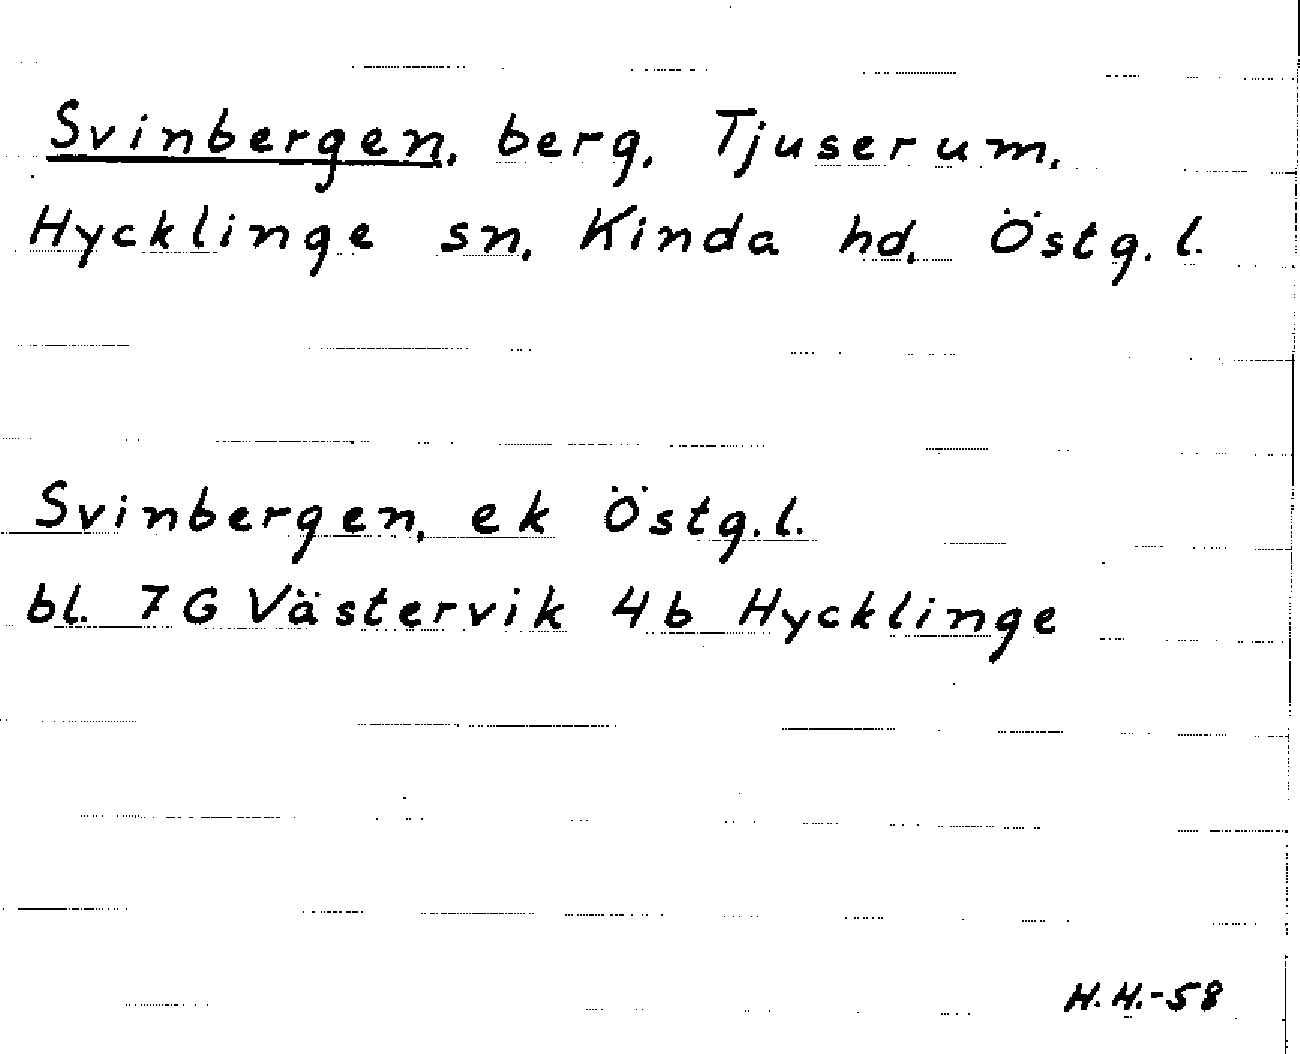 Svinbergen, berg, Tjuserum,
Hycklinge sn, Kinda hd, Östg. l.
Svinbergen, ek Östg. l.
bl. 7 G Västervik 4b Hycklinge
H. H. -58